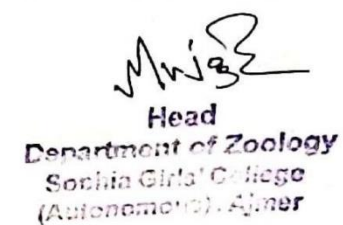 Head
Department of Zoology
Sophia Girls' College
(Autonomous), Ajmer